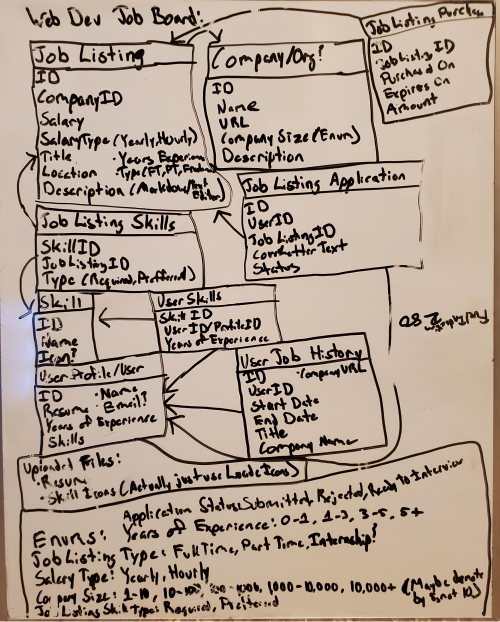 Web Dev Job Board:
Job Listing
ID
CompanyID
Salary
SalaryType (Yearly, Hourly)
Title · Years Experience
Location · Type (FT, PT,
Description (Markdown/Text Editor)
Company/Org?
ID
Name
URL
Company Size (Enum)
Description
Job Listing Purchase
ID
Job Listing ID
Purchased On
Expires On
Amount
Job Listing Application
ID
UserID
Job ListingID
CoverLetter Text
Status
Job Listing Skills
SkillID
JobListingID
Type (Required, Preffered)
Skill
ID
Name
Icon?
User Skills
Skill ID
User ID/ProfileID
Years of Experience
User Profile/User
ID · Name
Resume · Email?
Years of Experience
Skills
User Job History
ID · CompanyURL
UserID
Start Date
End Date
Title
Company Name
Uploaded Files:
· Resume
· Skill Icons (Actually just use Icons)
Application Status: Submitted, Rejected, Ready To Interview
Enums: Years of Experience: 0-1, 1-3, 3-5, 5+
Job Listing Type: Full Time, Part Time, Internship?
Salary Type: Yearly, Hourly
Company Size: 1-10, 10-100, 100-1000, 1000-10,000, 10,000+ (Maybe denote by 5 not 10)
Job Listing Skill Type: Required, Preferred